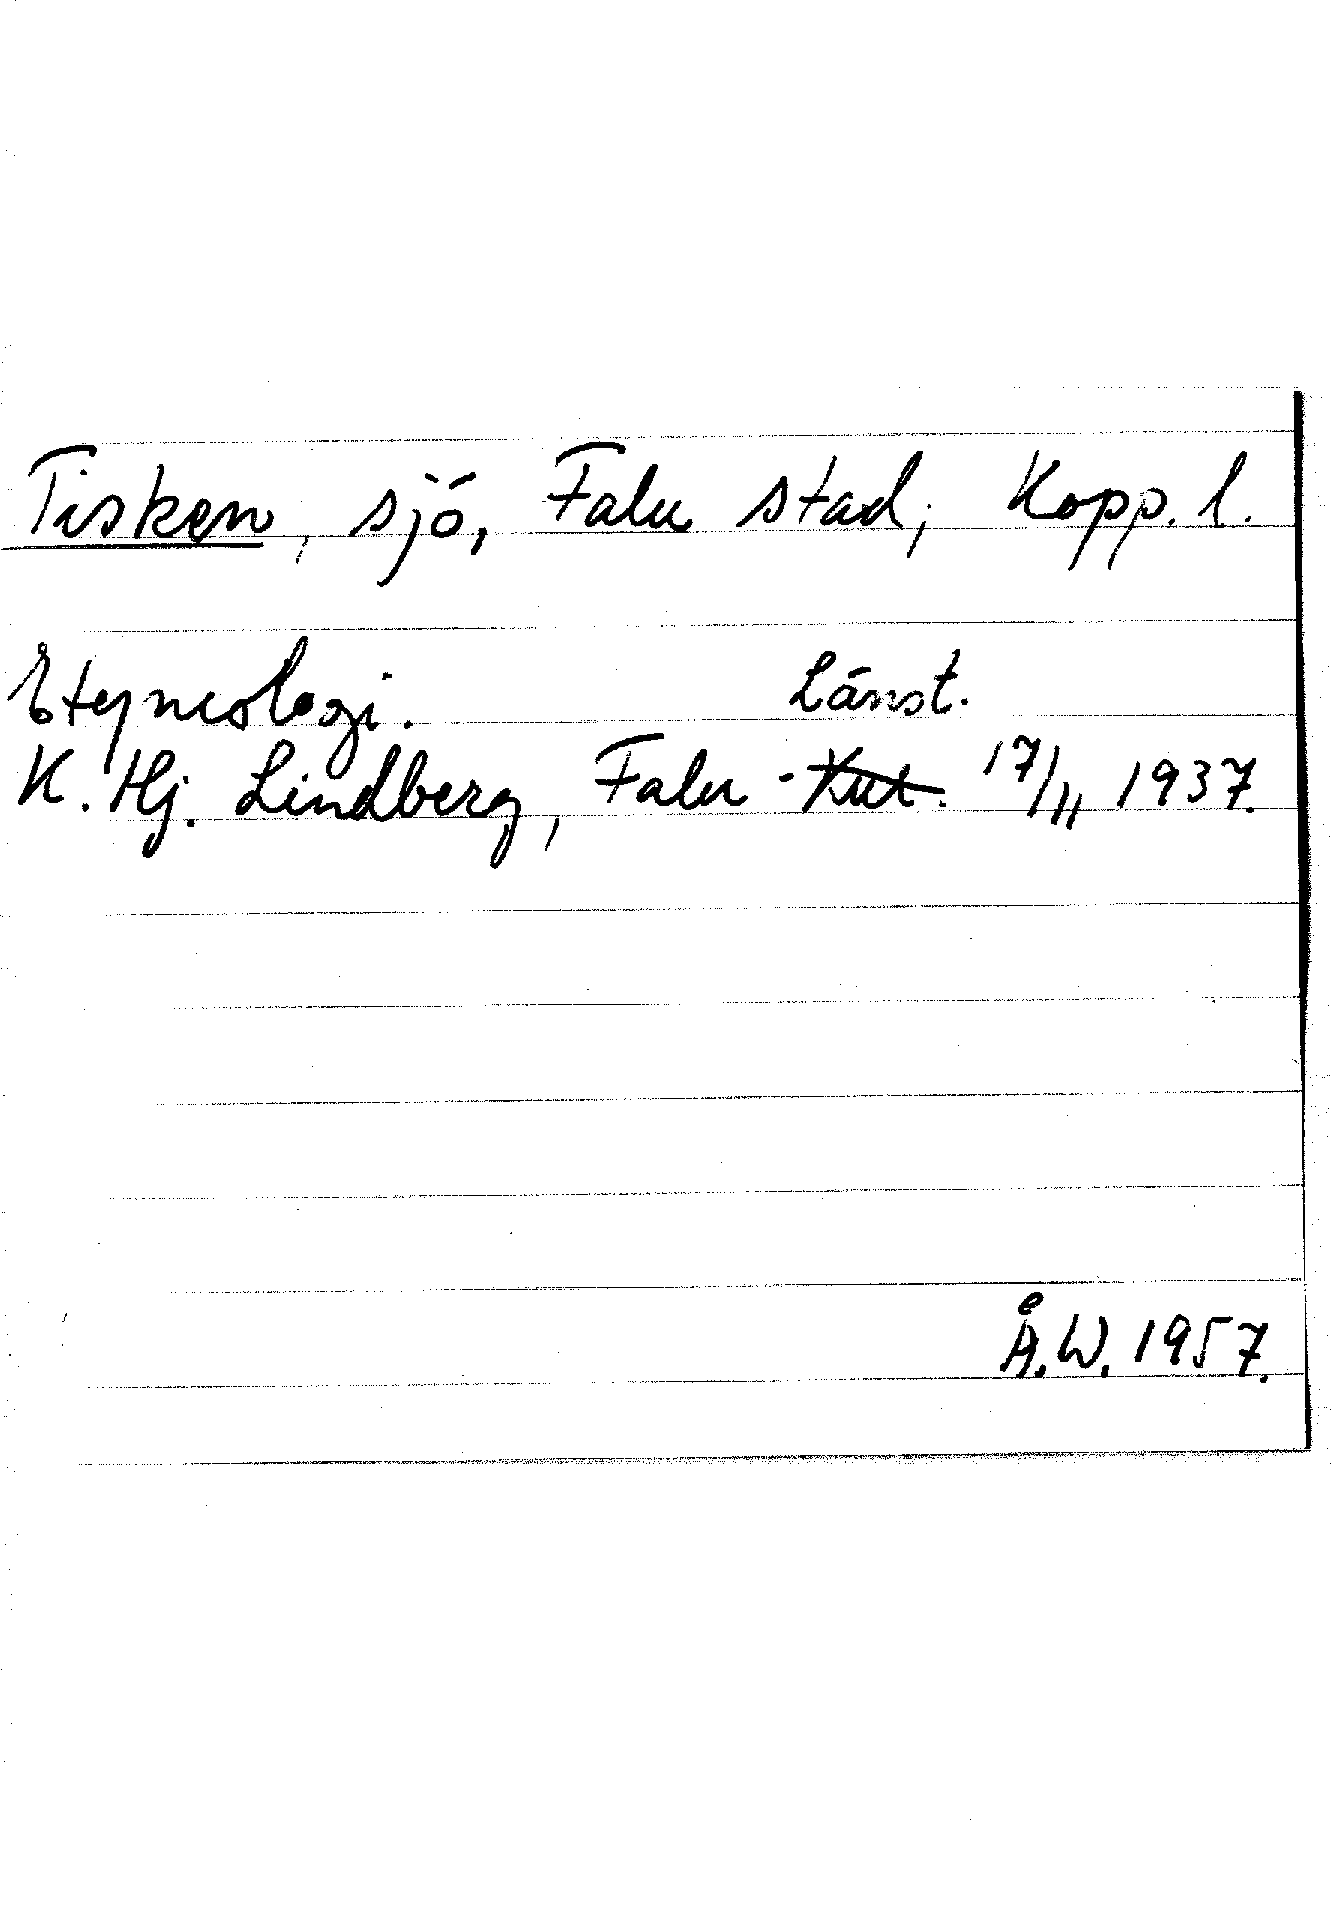 Tisken, sjö, Falu stad, Kopp. l.
Etymologi.
Länst.
K. Hj. Lindberg, Falu - Kur. 17/11 1937.
Å. W. 1957.